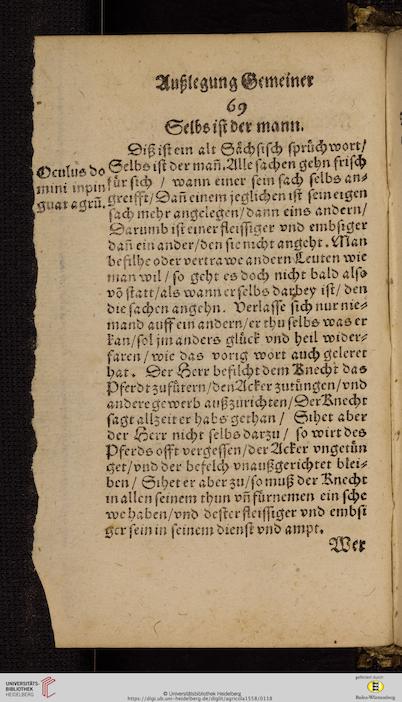 Außlegung Gemeiner
69
Selbs ist der mann.
Diß ist ein alt Sächsisch sprüchwort/
Oculus do
mini inpin
guat agrū.
Selbs ist der mañ. Alle sachen gehn frisch
für sich / wann einer sein sach selbs an⸗
greifft/ Dañ einem jeglichen ist sein eigen
sach mehr angelegen/ dann eins andern/
Darumb ist einer fleissiger vnd embsiger
dañ ein ander/ den sie nicht angeht. Man
befilhe oder vertrawe andern Leuten wie
man wil/ so geht es doch nicht bald also
võ statt/ als wann er selbs darbey ist/ den
die sachen angehn. Verlasse sich nur nie⸗
mand auff ein andern/ er thu selbs was er
kan/ sol jm anders glück vnd heil wider⸗
faren/ wie das vorig wort auch geleret
hat. Der Herr befilcht dem Knecht das
Pferdt zufütern/ den Acker zutüngen/ vnd
andere gewerb außzurichten/ Der Knecht
sagt allzeit er habs gethan / Sihet aber
der Herr nicht selbs darzu / so wirt des
Pferds offt vergessen/ der Acker vngetün
get/ vnd der befelch vnaußgerichtet blei⸗
ben / Sihet er aber zu/ so muß der Knecht
in allen seinem thun vñ fürnemen ein sche
we haben/ vnd dester fleissiger vnd embsi
ger sein in seinem dienst vnd ampt.
Wer
UNIVERSITÄTS-
BIBLIOTHEK
HEIDELBERG
© Universitätsbibliothek Heidelberg
https://digi.ub.uni-heidelberg.de/diglit/agricola1558/0118
gefördert durch
Baden-Württemberg